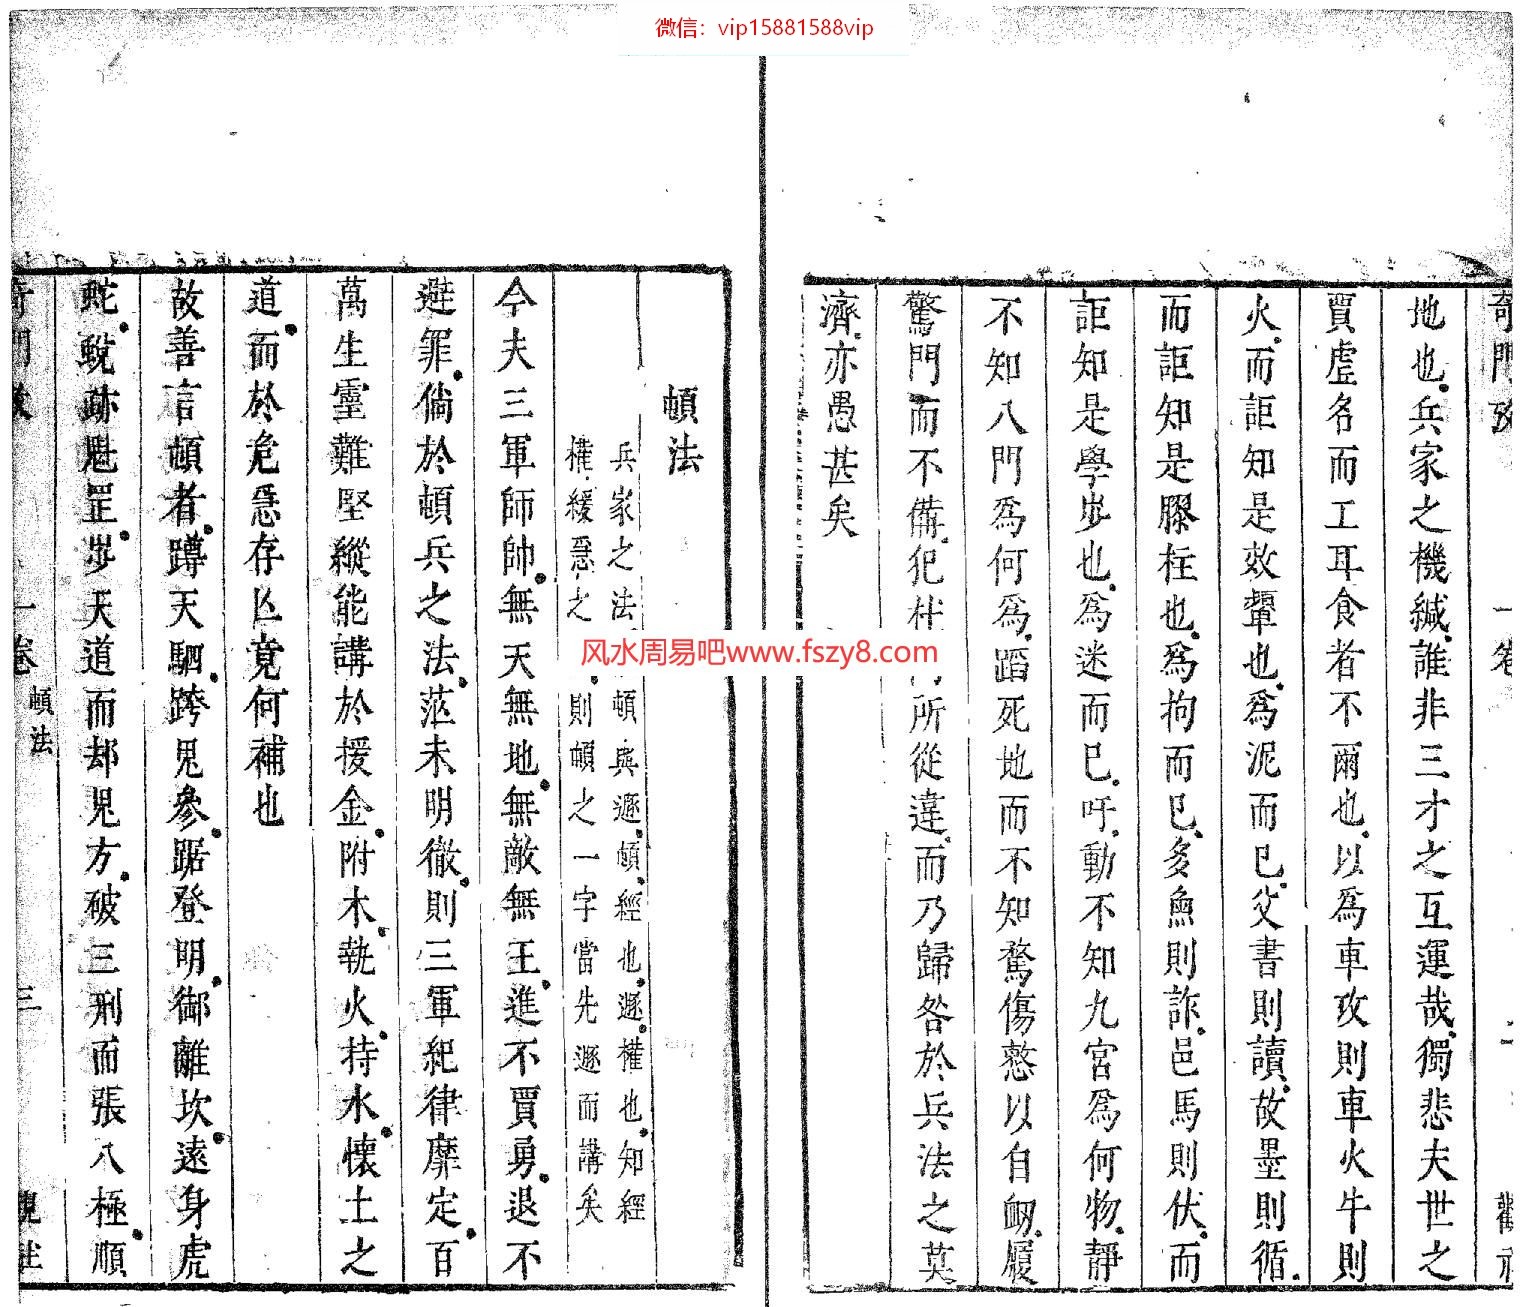 微信：vip15881588vip
奇門 一卷
地也兵家之機緘誰非三才之互運哉獨悲夫世之
賈虛名而工耳食者不爾也以為車攻則車火牛則
火而詎知是效顰也為泥而已父書則讀故墨則循
而詎知是膠柱也為拘而已多魚則詐邑馬則伏而
詎知是學步也為迷而已吁動不知九宮為何物靜
不知八門為何為蹈死地而不知驚傷憗以自衂履
驚門而不備犯杜 所從違而乃歸咎於兵法之莫
濟亦愚甚矣
风水周易吧www.fszy8.com
頓法
兵家之法 頓與遯頓經也遯權也知經
權緩急之 則頓之一字當先遯而講矣
今夫三軍師帥無天無地無敵無王進不賈勇退不
避罪倘於頓兵之法茫未明徹則三軍紀律靡定百
萬生靈難堅縱能講於援金附木執火持水懷土之
道而於危急存亾竟何補也
故善言頓者蹲天駟跨觜參踞登明御離坎遠身虎
蛇蛻跡魁罡步天道而却鬼方破三刑而張八極順
一卷 頓法 三